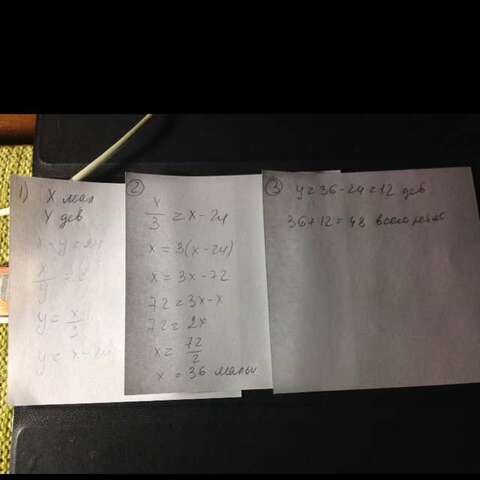 1)
X мал
Y дев
x - y = 24
y = x/3
y = x - 24
2
x/3 = x - 24
x = 3(x - 24)
x = 3x - 72
72 = 3x - x
72 = 2x
x = 72/2
x = 36 мальч
3
y = 36 - 24 = 12 дев
36 + 12 = 48 всего